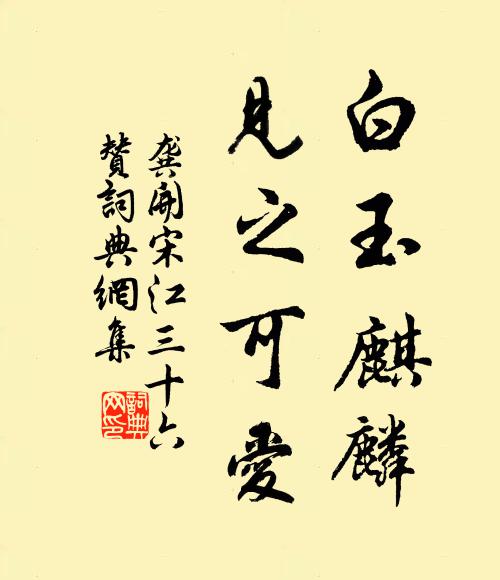 白玉麒麟
見之可愛
龔開宋江三十六
贊詞典網集
詞典
网印